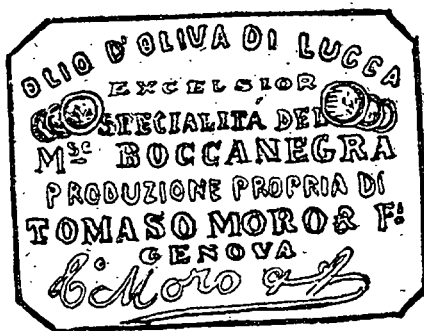 OLIO D'OLIVA DI LUCCA
EXCELSIOR
SPECIALITÀ DEL
Mse BOCCANEGRA
PRODUZIONE PROPRIA DI
TOMASO MORO & Fi
GENOVA
Moro